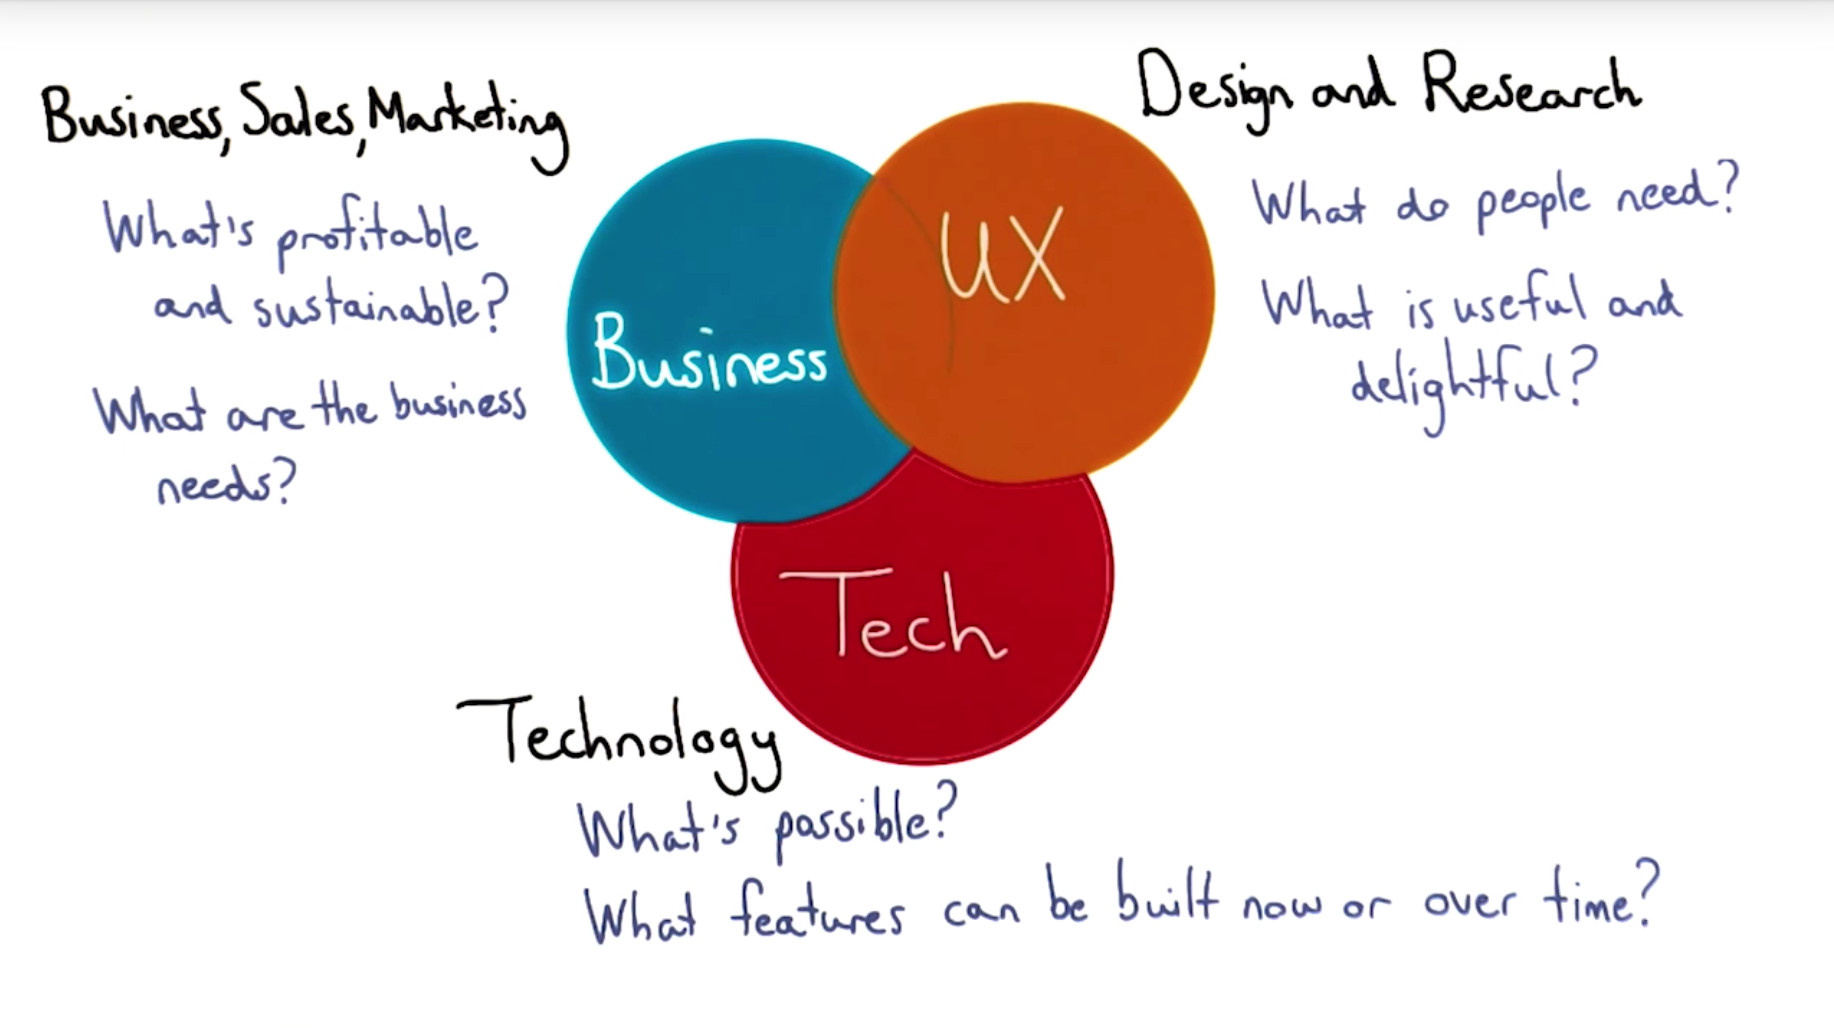 Business, Sales, Marketing
What's profitable
and sustainable?
What are the business
needs?
Business
UX
Design and Research
What do people need?
What is useful and
delightful?
Tech
Technology
What's possible?
What features can be built now or over time?